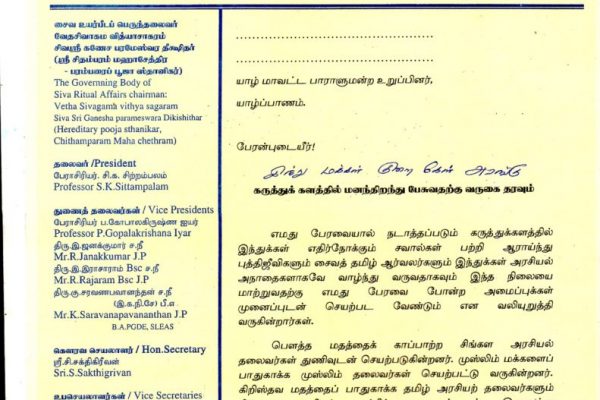 சைவ உயர்பீடப் பெருந்தலைவர்
வேதசிவாகம வித்யாசாகரம்
சிவஸ்ரீ கணேச பரமேஸ்வர தீக்ஷிதர்
(ஸ்ரீ சிதம்பரம் மஹாசேத்திர
- பரம்பரைப் பூஜா ஸ்தானிகர்)
The Governaing Body of
Siva Ritual Affairs chairman:
Vetha Sivagama vithya sagaram
Siva Sri Ganesha parameswara Dikishithar
(Hereditary pooja sthanikar,
Chithamparam Maha chethram)
தலைவர் /President
பேராசிரியர். சி.க. சிற்றம்பலம்
Professor S.K.Sittampalam
துணைத் தலைவர்கள் / Vice Presidents
பேராசிரியர் ப.கோபாலகிருஷ்ண ஐயர்
Professor P.Gopalakrishana Iyar
திரு.இ.ஜனக்குமார் ச.நீ
Mr.R.Janakkumar J.P
திரு.இ.இராசாராம் Bsc ச.நீ
Mr.R.Rajaram Bsc J.P
திரு.கு.சரவணபவானந்தன் ச.நீ
(இ.க.நி.சே) பீ.எ
Mr.K.Saravanapavananthan J.P
B.A.PGDE, SLEAS
கௌரவ செயலாளர் / Hon.Secretary
ஸ்ரீ.சி.சக்திகிரீவன்
Sri.S.Sakthigrivan
உபசெயலாளர்கள் / Vice Secretaries
யாழ் மாவட்ட பாராளுமன்ற உறுப்பினர்,
யாழ்ப்பாணம்.
பேரன்புடையீர்!
இந்து மக்கள் குறை கேள் அரங்கு
கருத்துக் களத்தில் மனந்திறந்து பேசுவதற்கு வருகை தரவும்
எமது பேரவையால் நடாத்தப்படும் கருத்துக்களத்தில்
இந்துக்கள் எதிர்நோக்கும் சவால்கள் பற்றி ஆராய்ந்து
புத்திஜீவிகளும் சைவத் தமிழ் ஆர்வலர்களும் இந்துக்கள் அரசியல்
அநாதைகளாகவே வாழ்ந்து வருவதாகவும் இந்த நிலையை
மாற்றுவதற்கு எமது பேரவை போன்ற அமைப்புக்கள்
முனைப்புடன் செயற்பட வேண்டும் என வலியுறுத்தி
வருகின்றார்கள்.
பௌத்த மதத்தைக் காப்பாற்ற சிங்கள அரசியல்
தலைவர்கள் துணிவுடன் செயற்படுகின்றனர். முஸ்லிம் மக்களைப்
பாதுகாக்க முஸ்லிம் தலைவர்கள் செயற்பட்டு வருகின்றனர்.
கிறிஸ்தவ மதத்தைப் பாதுகாக்க தமிழ் அரசியற் தலைவர்களும்